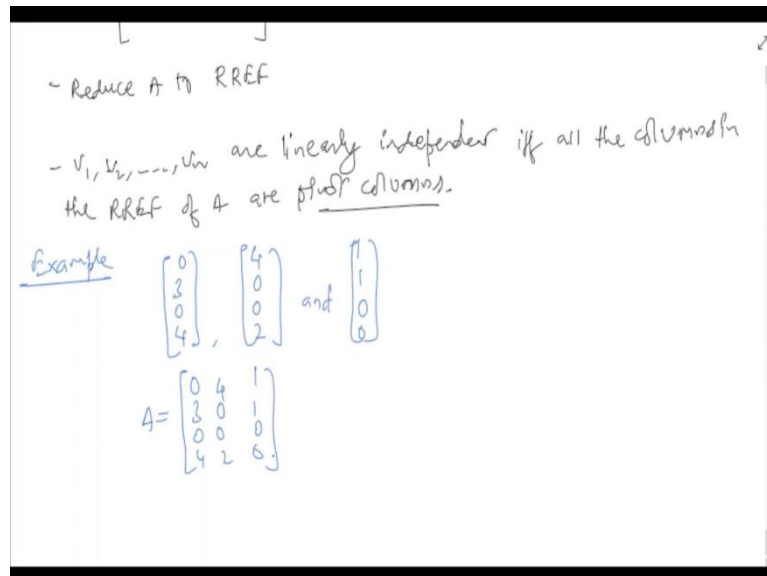 - Reduce A to RREF
- v₁, v₂, ..., vₙ are linearly independent iff all the columns in
the RREF of A are pivot columns.
Example [0 3 0 4], [4 0 0 2] and [1 1 0 0]
A = [0 4 1
3 0 1
0 0 0
4 2 0]